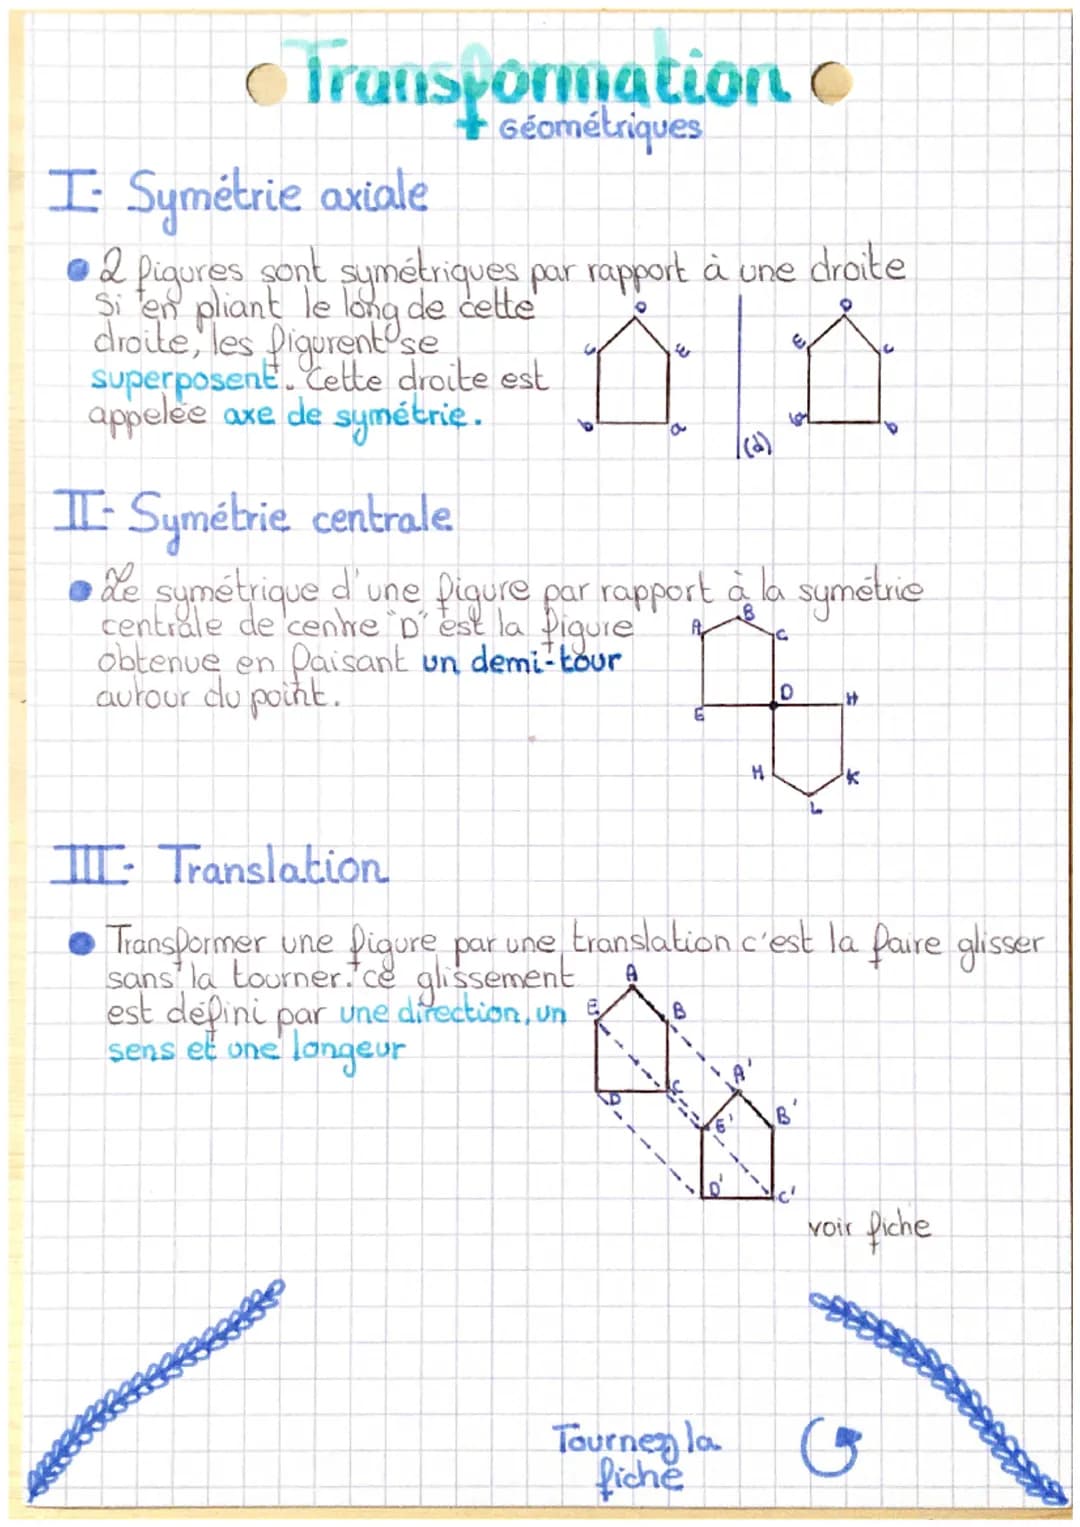 Transformation
Géométriques
I- Symétrie axiale
2 figures sont symétriques par rapport à une droite
Si en pliant le long de cette
droite, les figurent se
superposent. Cette droite est
appelée axe de symétrie.
(d)
II- Symétrie centrale
Le symétrique d'une figure par rapport à la symétrie
centrale de centre "D" est la figure
obtenue en faisant un demi-tour
autour du point.
A B C
D H
E
H K
L
III- Translation
Transformer une figure par une translation c'est la faire glisser
sans la tourner. ce glissement
est défini par une direction, un
sens et une longeur
A
E B
D C
A'
E' B'
D' C'
voir fiche
Tournez la
fiche